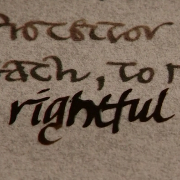 Protector
ath, to r
rightful